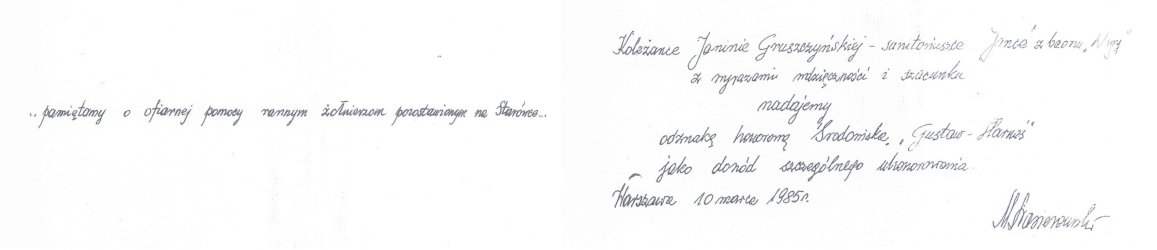 ..pamiętamy o ofiarnej pomocy rannym żołnierzom pozostawionym na Starówce...
Koleżance Janinie Gruszczyńskiej - sanitariuszce "Jance" z baonu "Wigry"
z wyrazami wdzięczności i szacunku
nadajemy
odznakę honorową Środowiska "Gustaw-Harnaś"
jako dowód szczególnego uhonorowania.
Warszawa 10 marca 1985r.